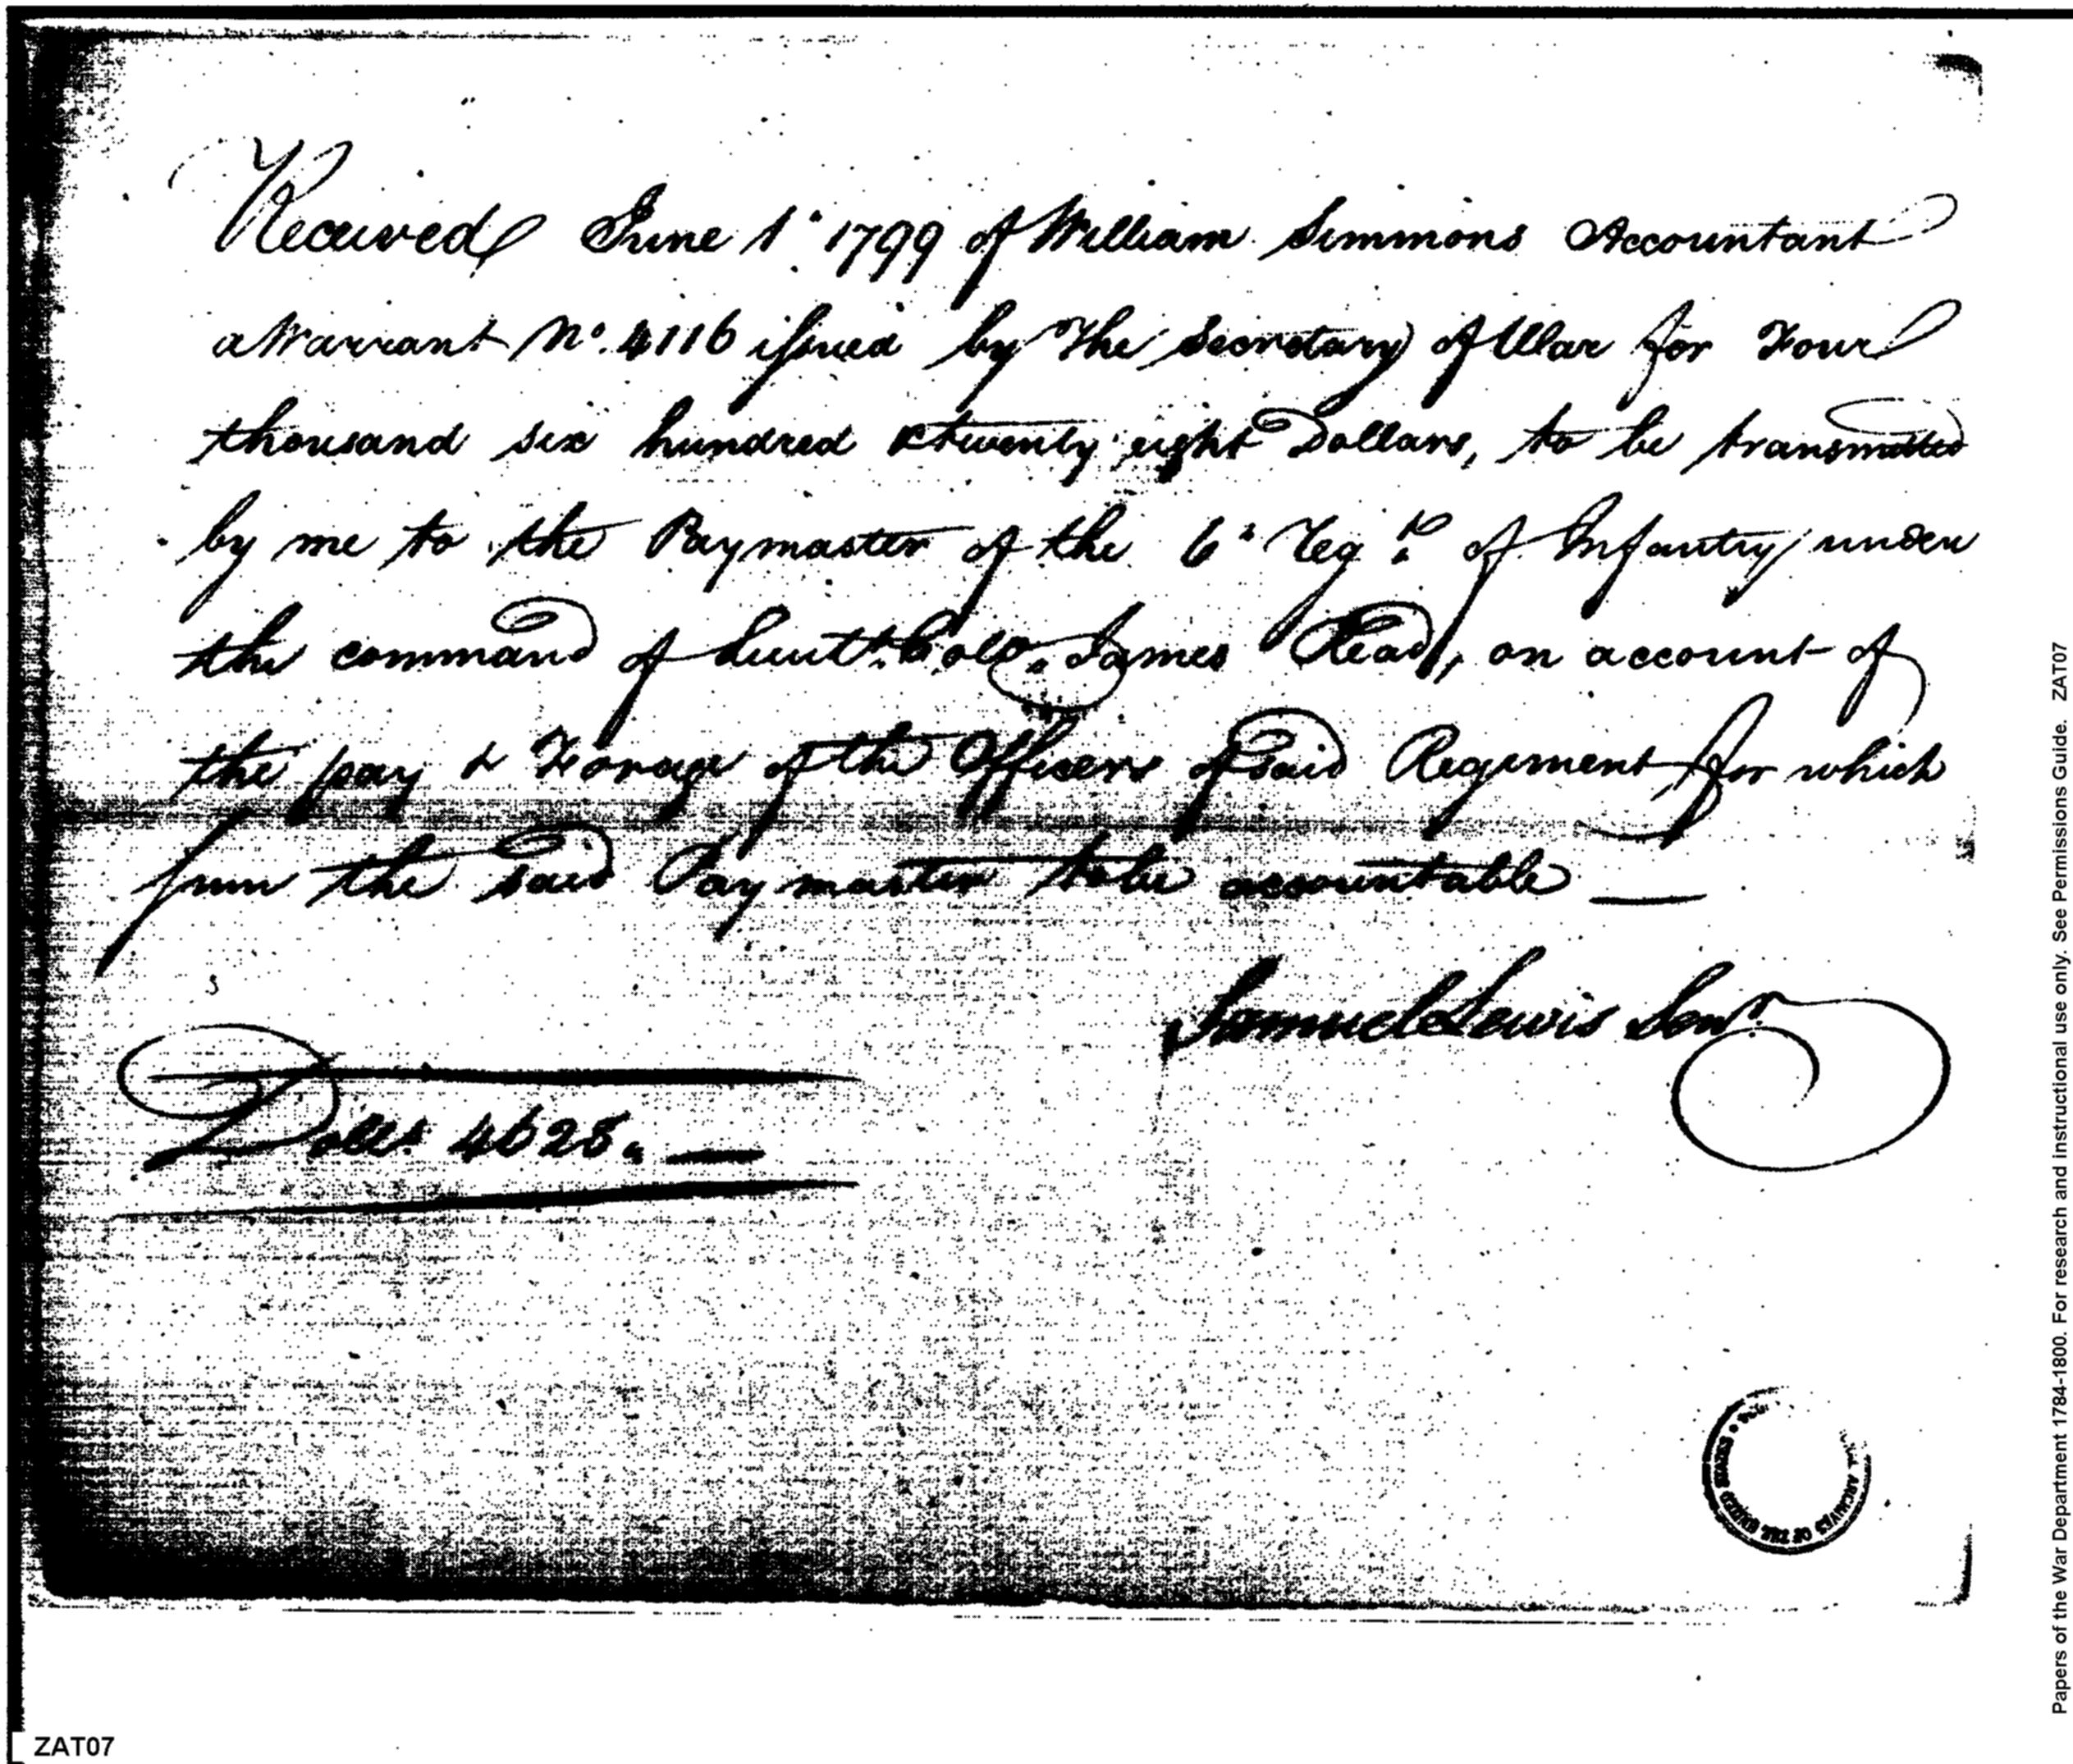 Received June 1. 1799 of William Simmons Accountant
a Warrant No. 4116 issued by the Secretary of War for Four
thousand six hundred & twenty eight Dollars, to be transmitted
by me to the Paymaster of the 6. Regt. of Infantry under
the command of Lieutt. Colo. James Read, on account of
the pay & Forage of the Officers of said Regiment for which
from the said Paymaster to be accountable —
Samuel Lewis Senr.
Dolls. 4628. —
ARCHIVES OF THE UNITED STATES
ZAT07
Papers of the War Department 1784-1800. For research and instructional use only. See Permissions Guide. ZAT07